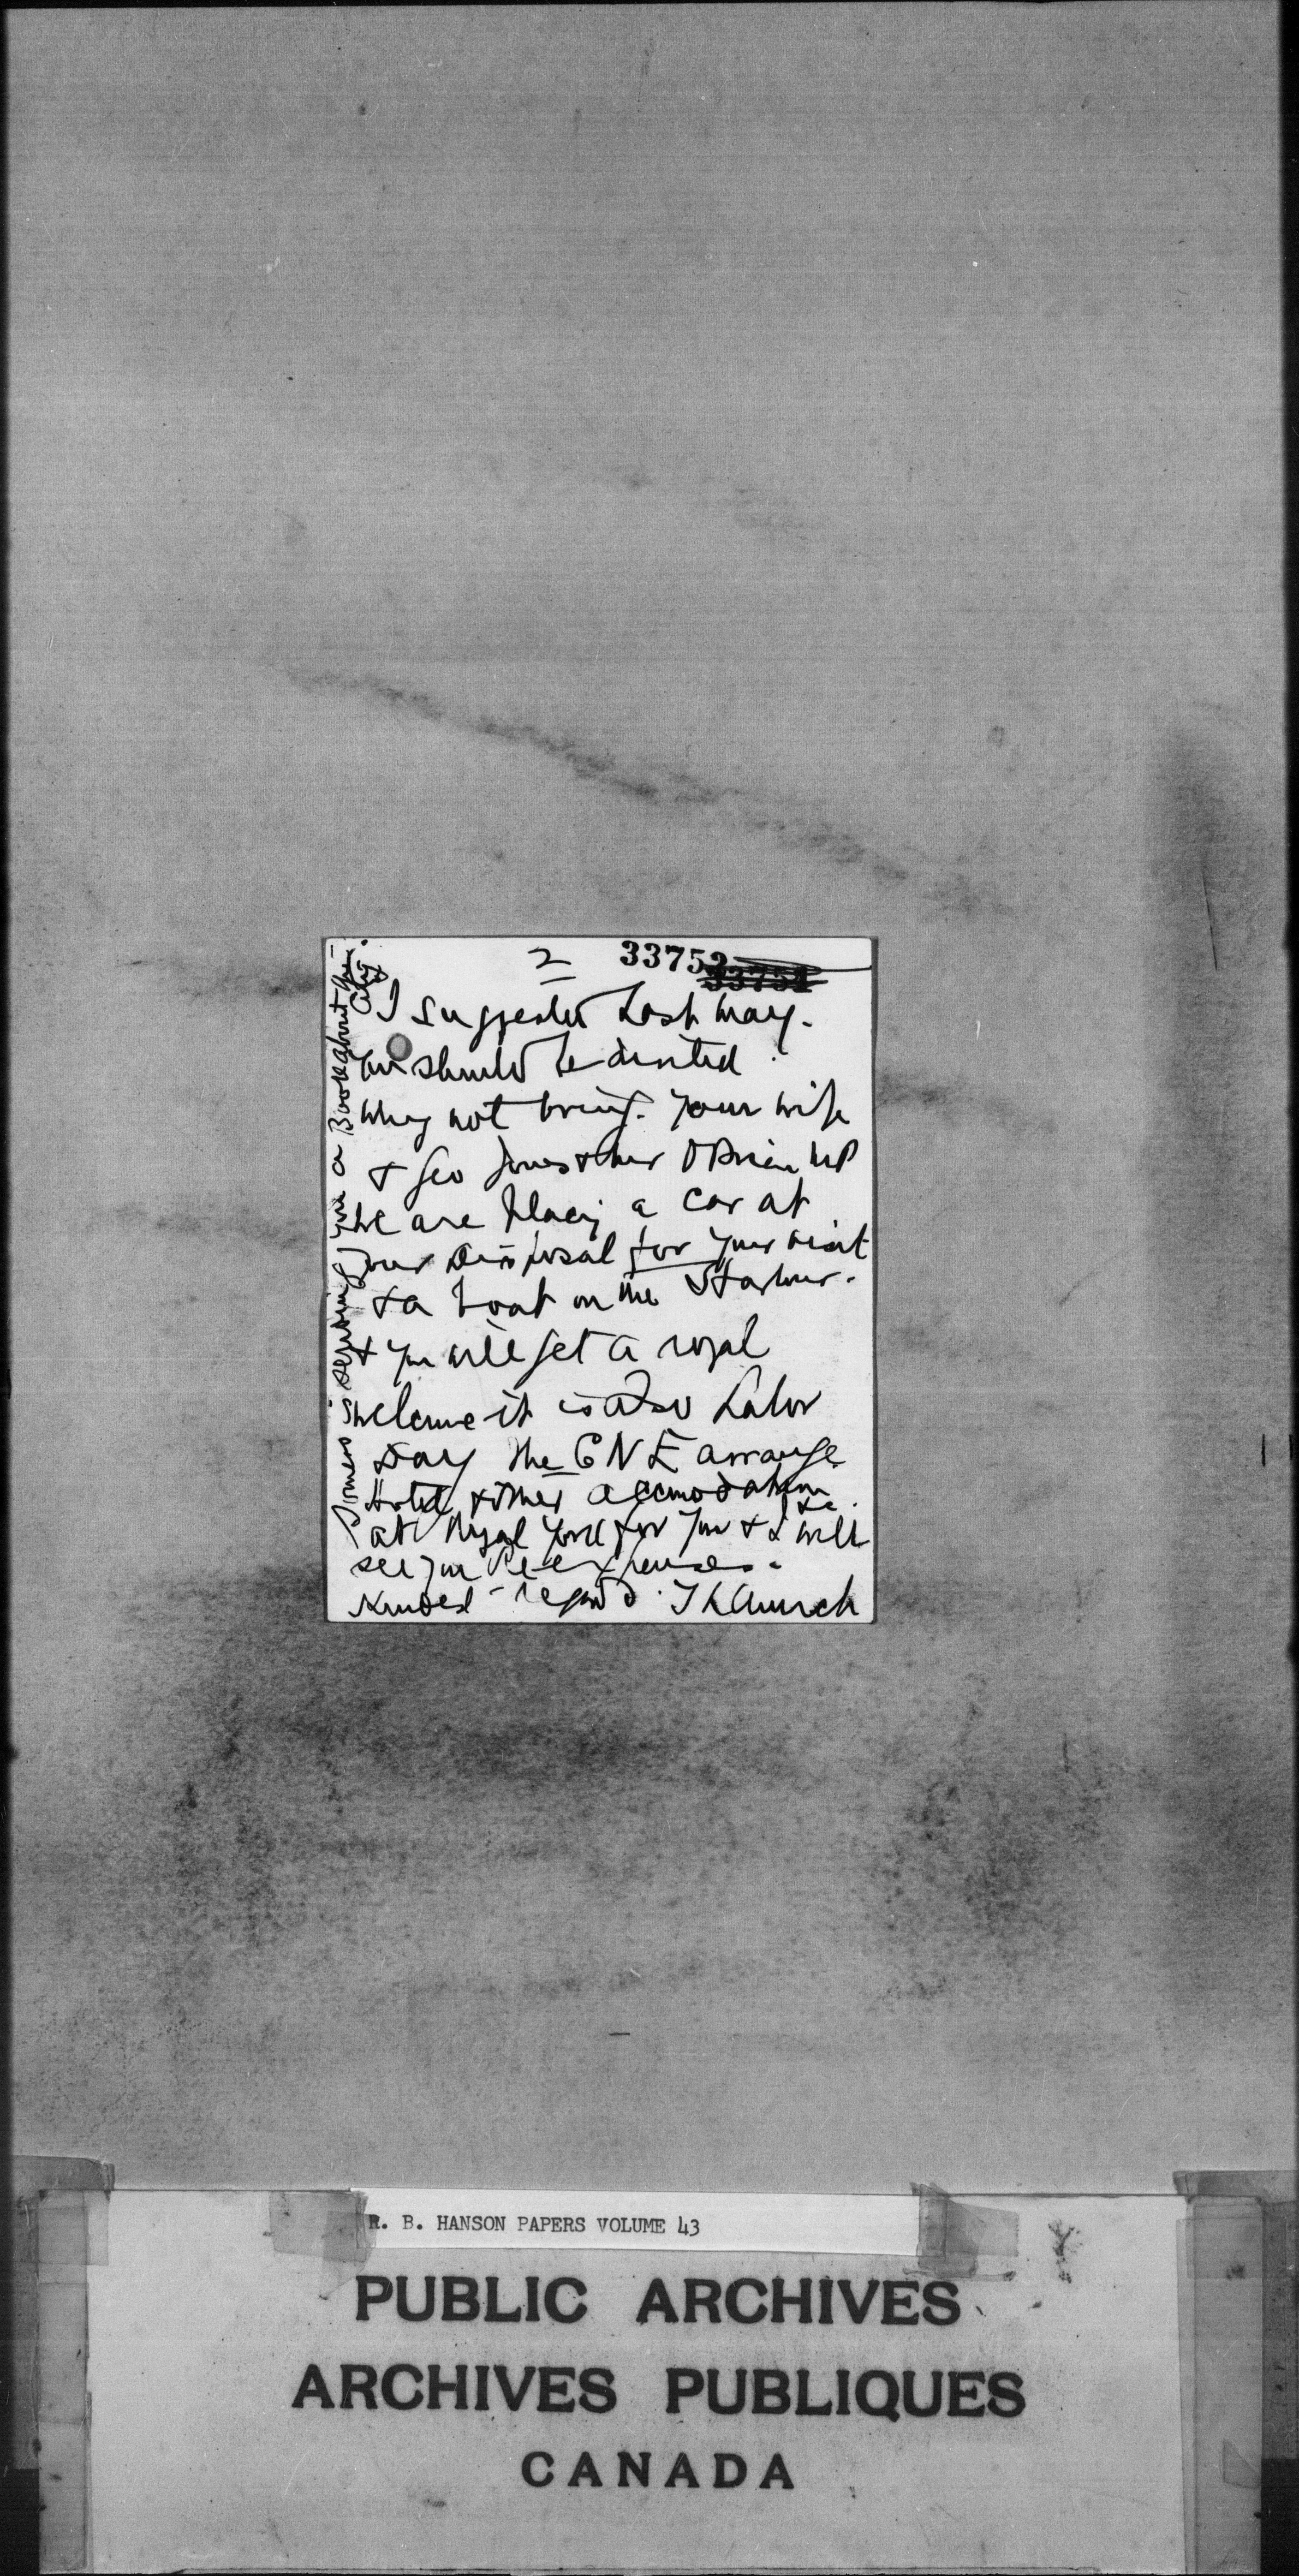 2
33752
33751
I suggested last May.
you should be invited.
Why not bring. your wife
+ Geo Jones + her O'Brien up
We are placing a car at
your Disposal for your visit
+ a boat on the Harbour.
+ you will get a royal
welcome it is also Labor
Day the CNE arrange
Hotel + other accomodation
at Royal York for you + I will
see your expenses.
Kindest regards. T L Church
sending you a Book about the
City.
R. B. HANSON PAPERS VOLUME 43
PUBLIC ARCHIVES
ARCHIVES PUBLIQUES
CANADA